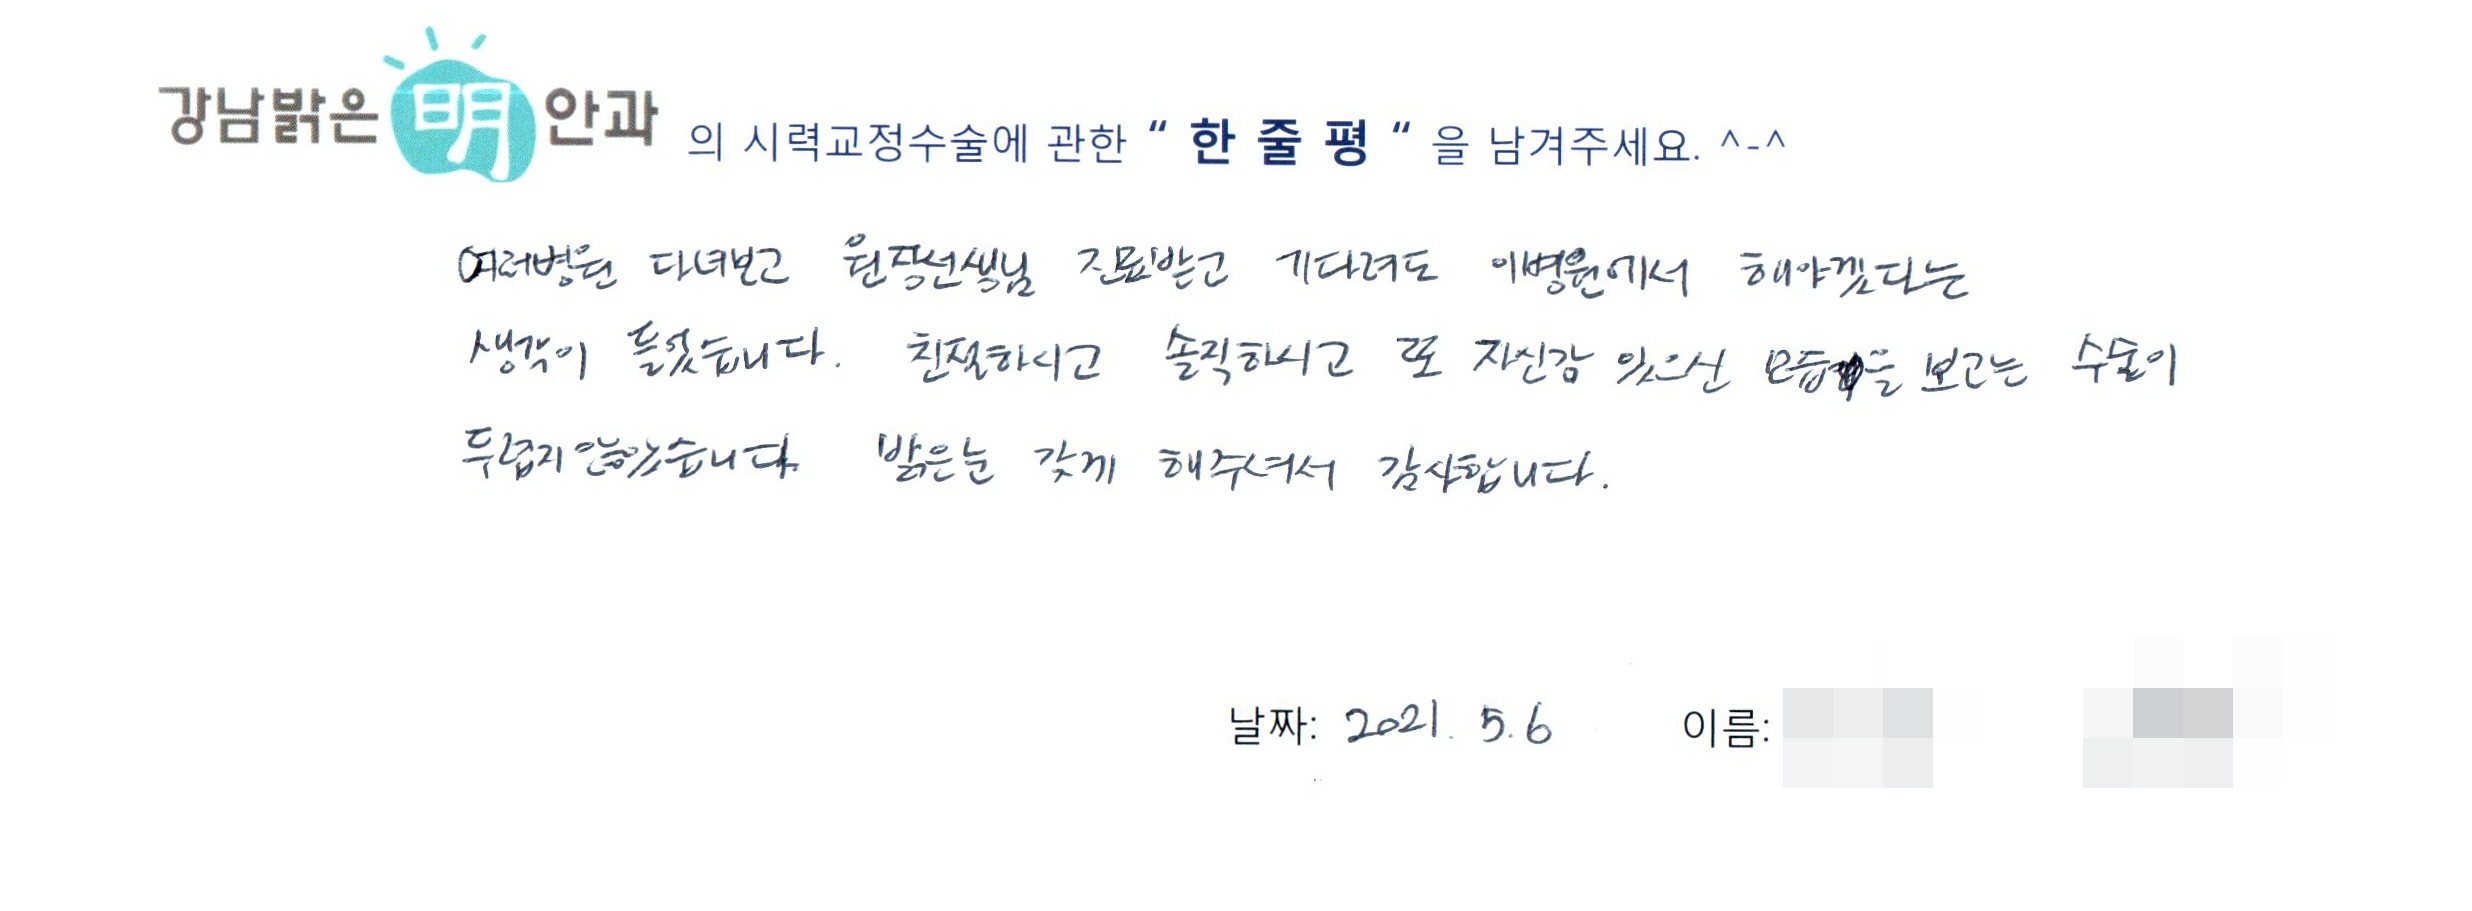 강남밝은明안과 의 시력교정수술에 관한 “ 한 줄 평 “ 을 남겨주세요. ^-^
여러병원 다녀보고 원장선생님 진료받고 기다려도 이병원에서 해야겠다는
생각이 들었습니다. 친절하시고 솔직하시고 또 자신감 있으신 모습을 보고는 수술이
두렵지 않았습니다. 밝은눈 갖게 해주셔서 감사합니다.
날짜: 2021. 5. 6 이름: